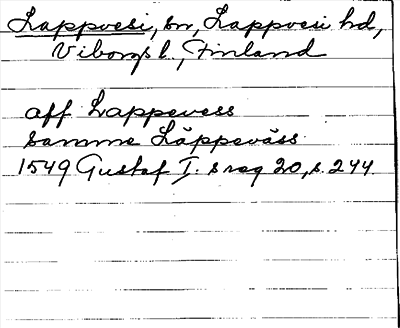 Lappvesi, sn, Lappvesi hd,
Viborgs l., Finland
aff Lappevess
samme Läppeväss
1549 Gustaf I. s reg 20, s. 244.